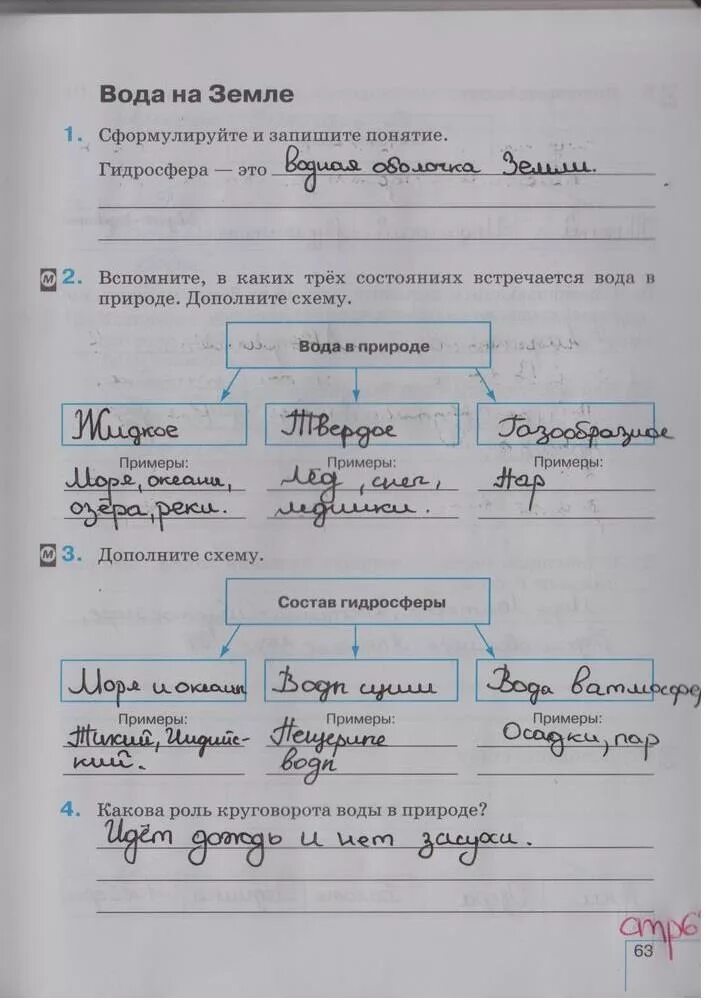 Вода на Земле
1. Сформулируйте и запишите понятие.
Гидросфера — это водная оболочка Земли.
м 2. Вспомните, в каких трёх состояниях встречается вода в
природе. Дополните схему.
Вода в природе
Жидкое Твердое Газообразное
Примеры: Примеры: Примеры:
Моря, океаны, Лёд, снег, Пар
озёра, реки. ледники.
м 3. Дополните схему.
Состав гидросферы
Моря и океаны Воды суши Вода в атмосфере
Примеры: Примеры: Примеры:
Тихий, Индийс- Пещерные Осадки, пар
кий. воды
4. Какова роль круговорота воды в природе?
Идёт дождь и нет засухи.
стр6
63